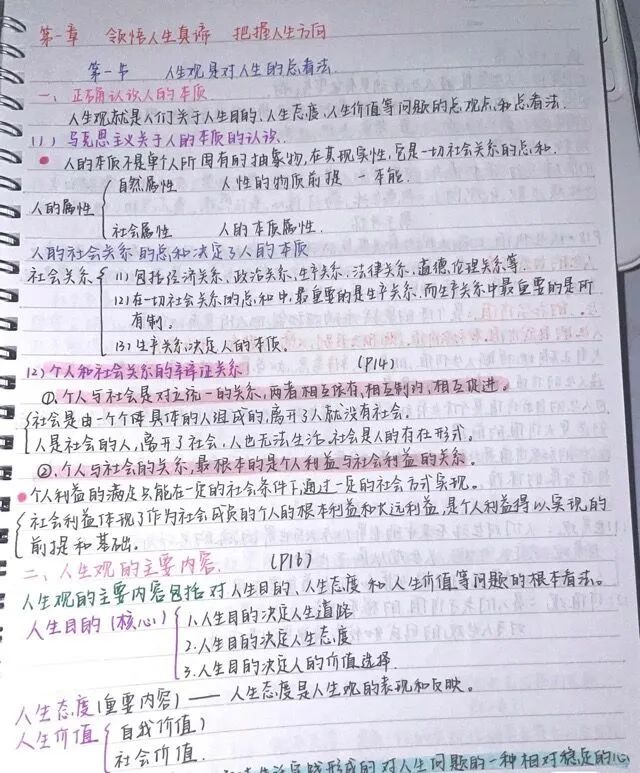 第一章 领悟人生真谛 把握人生方向
第一节 人生观是对人生的总看法
一、正确认识人的本质
人生观就是人们关于人生目的、人生态度、人生价值等问题的总观点和总看法.
(1) 马克思主义关于人的本质的认识.
人的本质不是单个人所固有的抽象物,在其现实性,它是一切社会关系的总和.
人的属性
自然属性 人性的物质前提 — 本能.
社会属性 人的本质属性.
人的社会关系的总和决定了人的本质
社会关系
(1) 包括经济关系、政治关系、生产关系、法律关系、道德、伦理关系等.
(2) 在一切社会关系的总和中,最重要的是生产关系,而生产关系中最重要的是所
有制。
(3) 生产关系决定人的本质。
(2) 个人和社会关系的辩证关系 (P14)
①.个人与社会是对立统一的关系,两者相互依存,相互制约,相互促进。
社会是由一个个具体的人组成的,离开了人就没有社会.
人是社会的人,离开了社会,人也无法生活.社会是人的存在形式。
②.个人与社会的关系,最根本的是个人利益与社会利益的关系。
个人利益的满足只能在一定的社会条件下,通过一定的社会方式实现。
社会利益体现了作为社会成员的个人的根本利益和长远利益,是个人利益得以实现的
前提和基础.
二、人生观的主要内容. (P16)
人生观的主要内容包括对人生目的、人生态度和人生价值等问题的根本看法。
人生目的(核心)
1.人生目的决定人生道路
2.人生目的决定人生态度
3.人生目的决定人的价值选择.
人生态度(重要内容) —— 人生态度是人生观的表现和反映。
人生价值
自我价值)
社会价值.
形成的对人生问题的一种相对稳定的心